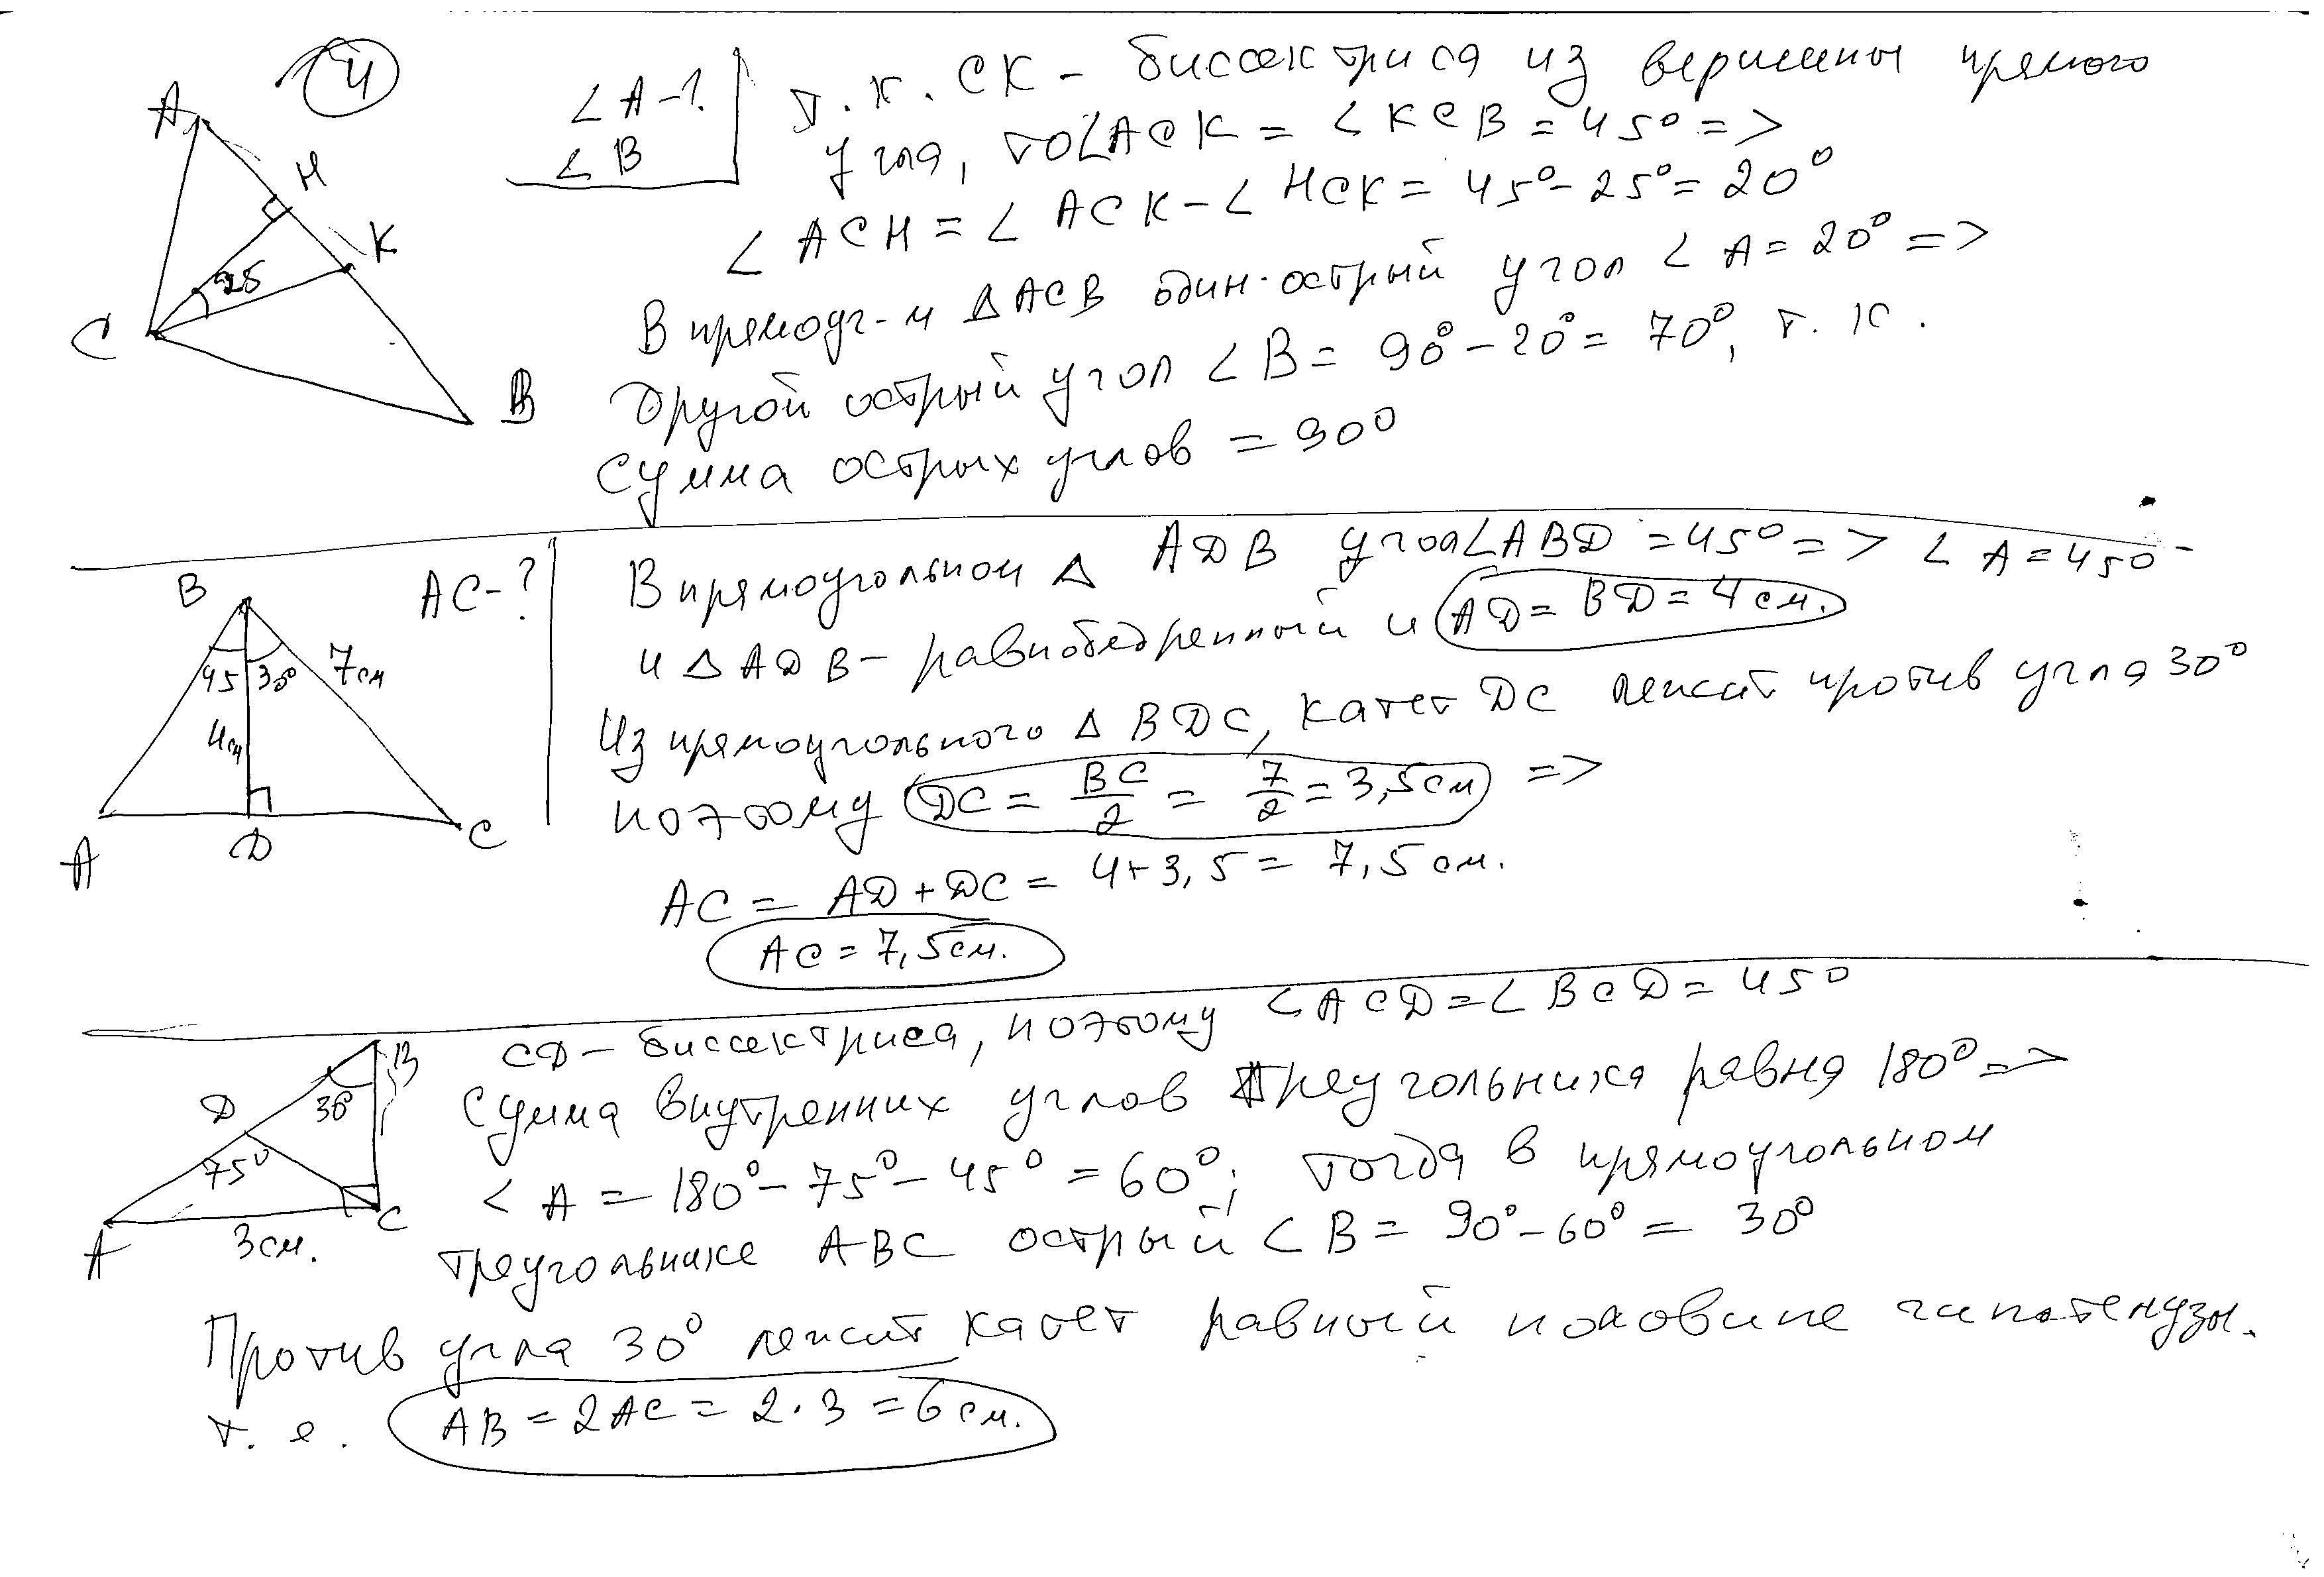 4
A
H
K
25
C
B
∠A-?
∠B
т.к. СК - биссектриса из вершины прямого
угла, то ∠ACK = ∠KCB = 45° =>
∠ACH = ∠ACK - ∠HCK = 45° - 25° = 20°
В прямоуг-м △ACB один острый угол ∠A = 20° =>
другой острый угол ∠B = 90° - 20° = 70°, т.к.
Сумма острых углов = 90°
B
45
30°
7см
4см
A
D
C
AC-?
В прямоугольном △ ADB угол ∠ABD = 45° => ∠A = 45°
и △ADB - равнобедренный и AD = BD = 4 см.
Из прямоугольного △ BDC, катет DC лежит против угла 30°
поэтому DC = BC/2 = 7/2 = 3,5 см =>
AC = AD + DC = 4 + 3,5 = 7,5 см.
AC = 7,5 см.
B
30
D
75°
A
3 см.
C
CD - биссектриса, поэтому ∠ACD = ∠BCD = 45°
Сумма внутренних углов треугольника равна 180° =>
∠A = 180° - 75° - 45° = 60°; тогда в прямоугольном
треугольнике ABC острый ∠B = 90° - 60° = 30°
Против угла 30° лежит катет равный половине гипотенузы.
т.е. AB = 2AC = 2·3 = 6 см.